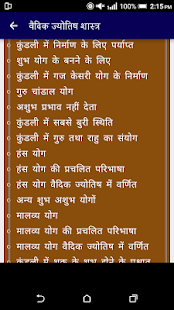 2:15PM
वैदिक ज्योतिष शास्त्र
कुंडली में निर्माण के लिए पर्याप्त
शुभ योग के बनने के लिए
कुंडली में गज केसरी योग के निर्माण
गुरु चांडाल योग
अशुभ प्रभाव नहीं देता
कुंडली में सबसे बुरी स्थिति
कुंडली में गुरु तथा राहु का संयोग
हंस योग
हंस योग की प्रचलित परिभाषा
हंस योग वैदिक ज्योतिष में वर्णित
अन्य शुभ अशुभ योगों
मालव्य योग
मालव्य योग की प्रचलित परिभाषा
मालव्य योग वैदिक ज्योतिष में वर्णित
कुंडली में शुक्र के शुभ होने के पश्चात